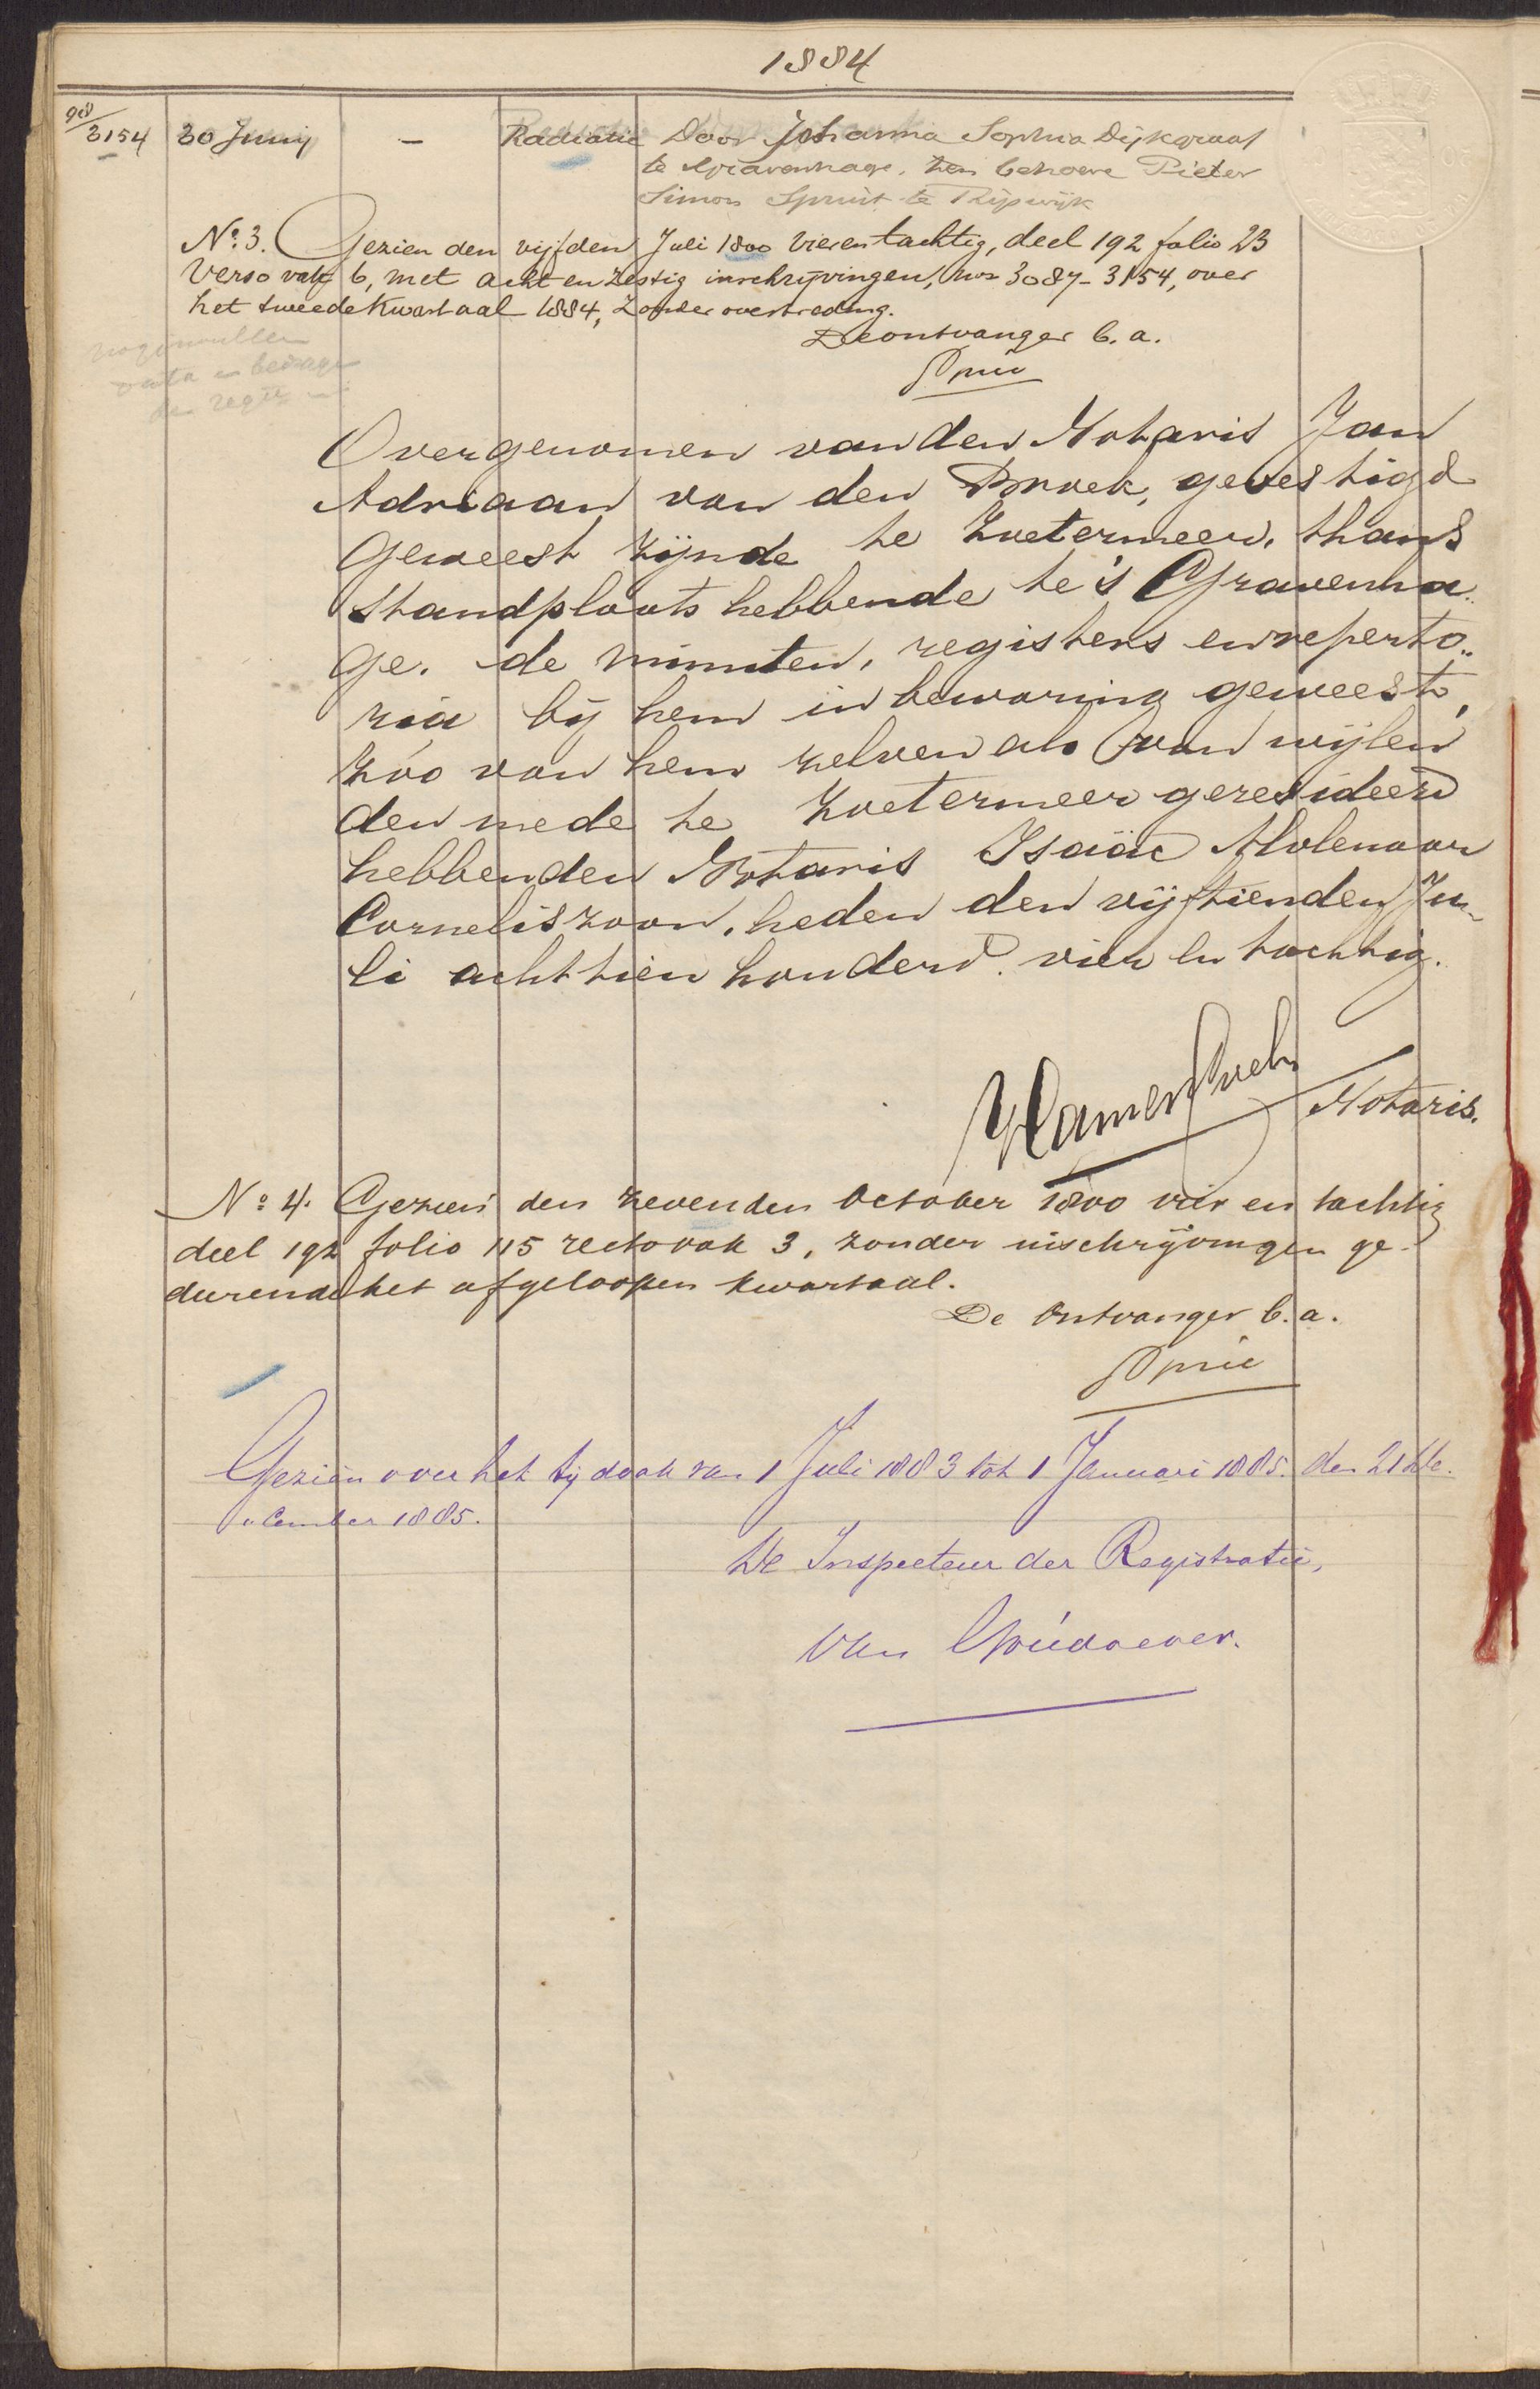 1884
98
3154 30 Junij - Radiatie Door Johanna Sophia Dijkgraaf
te 'sGravenhage, ten behoeve Pieter
Simon Spruit te Rijswijk
No. 3. Gezien den vijfden Juli 1800 vierentachtig, deel 192 folio 23
verso vak 6, met acht en zestig inschrijvingen, nos 3087-3154, over
het tweede kwartaal 1884, zonder overtreding.
De ontvanger b.a.
data en bedrage
der regte
Overgenomen van den Notaris Jan
Adriaan van den Broek, gevestigd
geweest zijnde te Zoetermeer, thans
standplaats hebbende te 's Gravenha-
ge. de minuten, registers en reperto-
ria bij hem in bewaring geweest,
zóo van hem zelven als van wijlen
den mede te Zoetermeer geresideerd
hebbenden Notaris Isaäc Molenaar
Corneliszoon, heden den vijftienden Ju-
li achttien honderd vier en tachtig.
Notaris.
No 4. Gezien den zevenden October 1800 vier en tachtig
deel 192 folio 115 recto vak 3, zonder inschrijvingen ge-
durende het afgeloopen kwartaal.
De Ontvanger b.a.
Gezien over het tijdvak van 1 Juli 1883 tot 1 Januari 1885. den 21 De-
cember 1885.
De Inspecteur der Registratie,